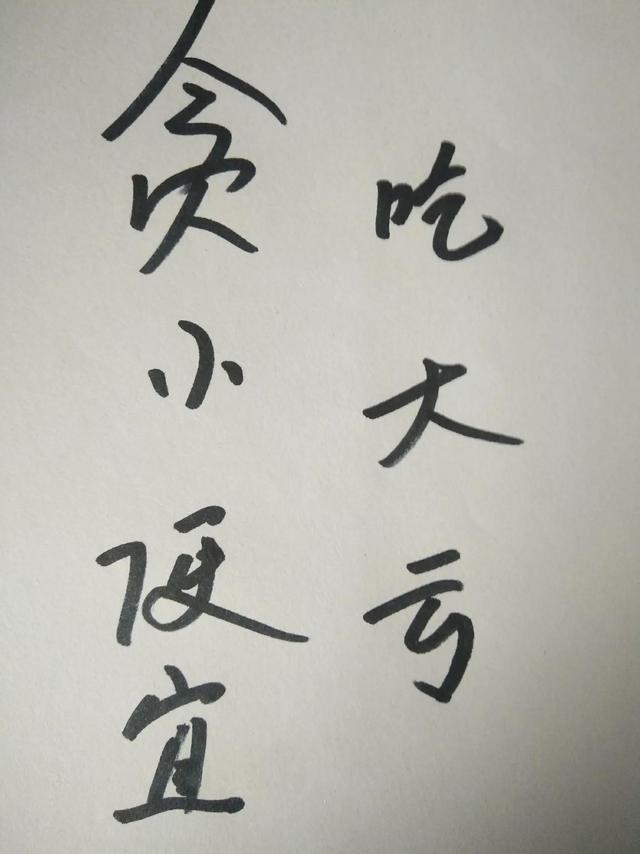 贪小便宜
吃大亏